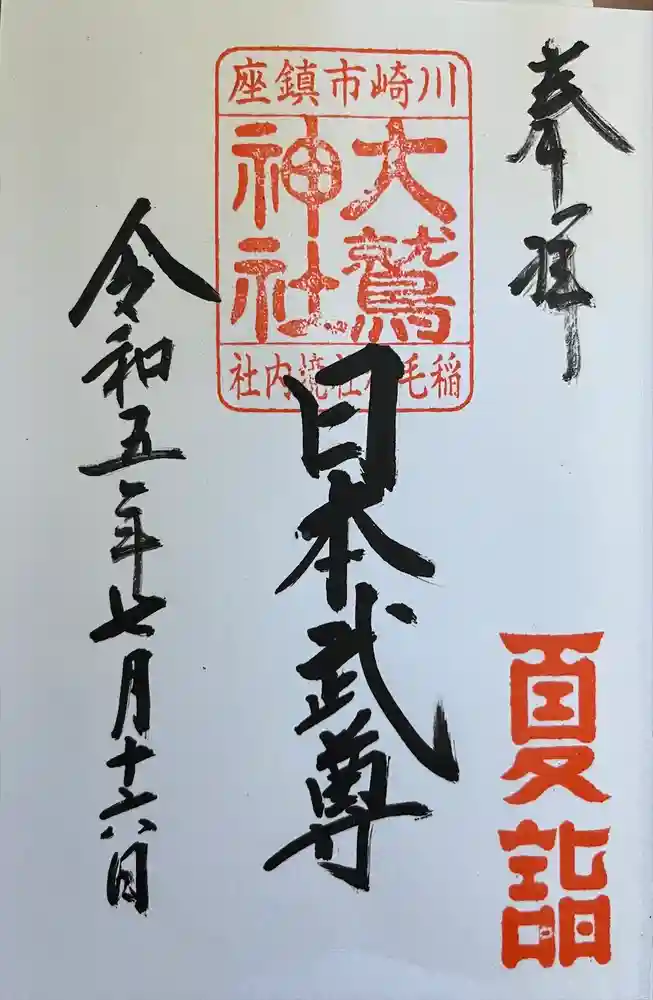 奉拝
川崎市鎮座
大鷲
神社
稲毛神社境内社
日本武尊
夏詣
令和五年七月十六日